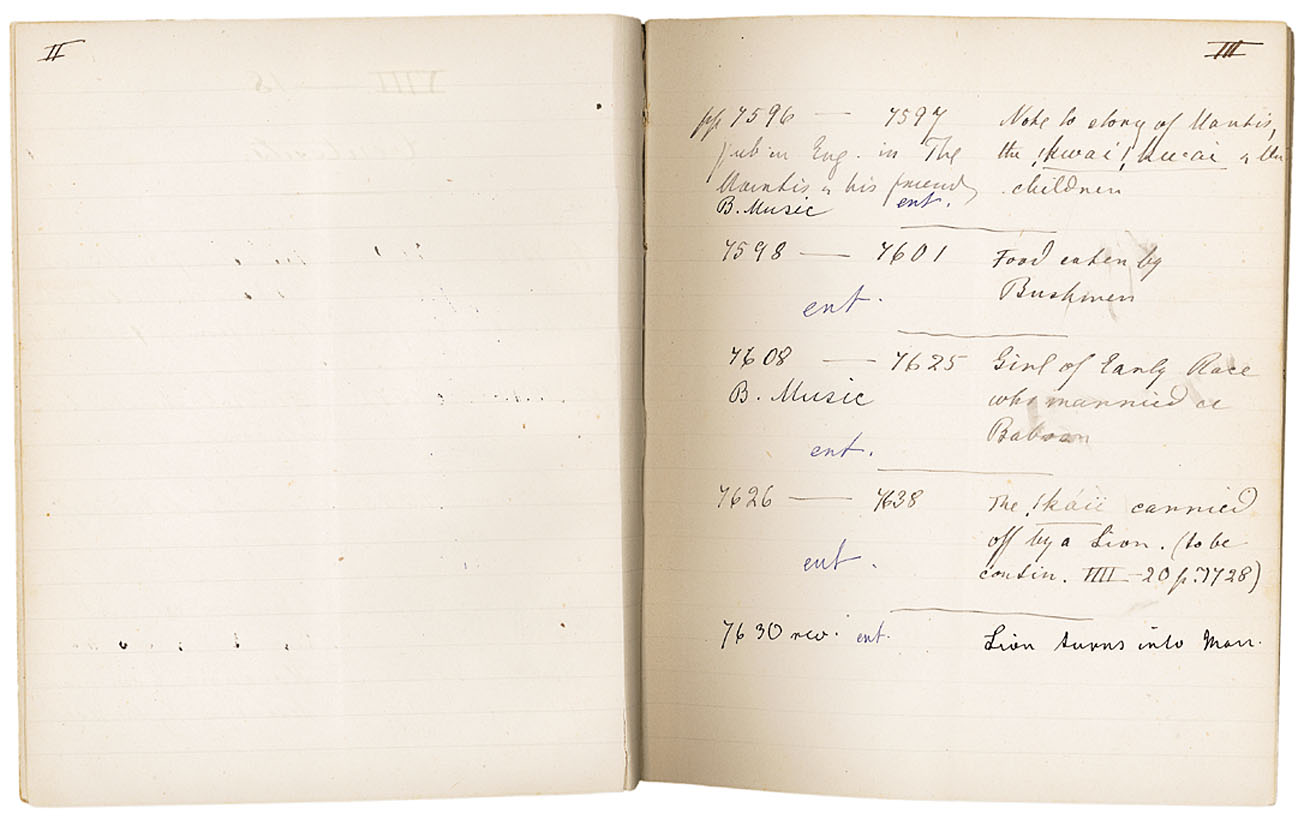 II
III
pp 7596 — 7597 Note to story of Mantis,
pub in Eng. in The the !kwai! kwai & the
Mantis & his friend children
B. Music ent.
7598 — 7601 Food eaten by
ent. Bushmen
7608 — 7625 Girl of Early Race
B. Music who married a
ent. Baboon
7626 — 7638 The !kaii carried
off by a Lion. (to be
ent. contin. VIII—20 p. 7728)
7630 rev. ent. Lion turns into Man.